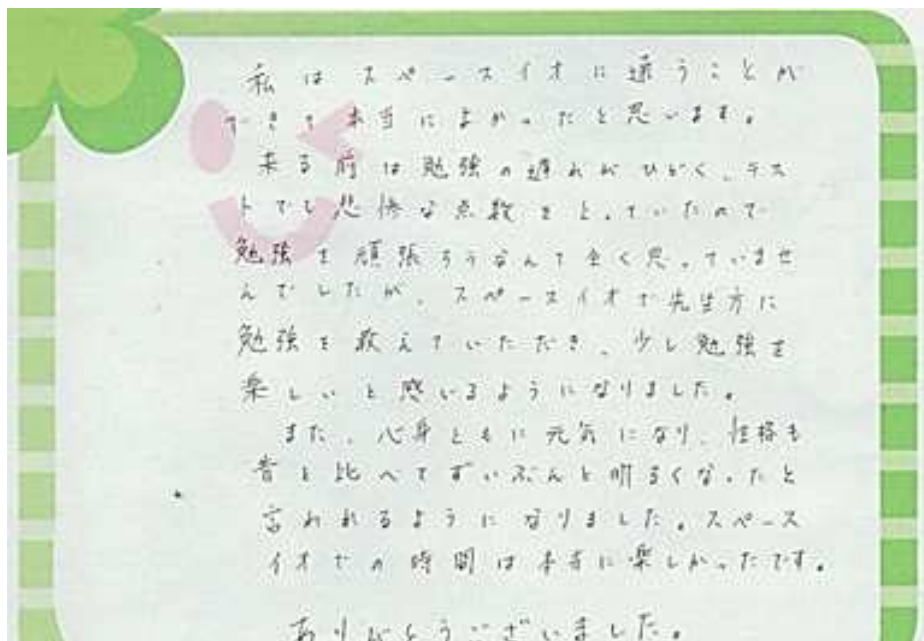 私はスペースイオに通うことが
できて本当によかったと思います。
来る前は勉強の遅れがひどく、テス
トでも悲惨な点数をとっていたので
勉強を頑張ろうなんて全く思っていませ
んでしたが、スペースイオで先生方に
勉強を教えていただき、少し勉強を
楽しいと感じるようになりました。
また、心身ともに元気になり、性格も
昔と比べてずいぶんと明るくなったと
言われるようになりました。スペース
イオでの時間は本当に楽しかったです。
ありがとうございました。